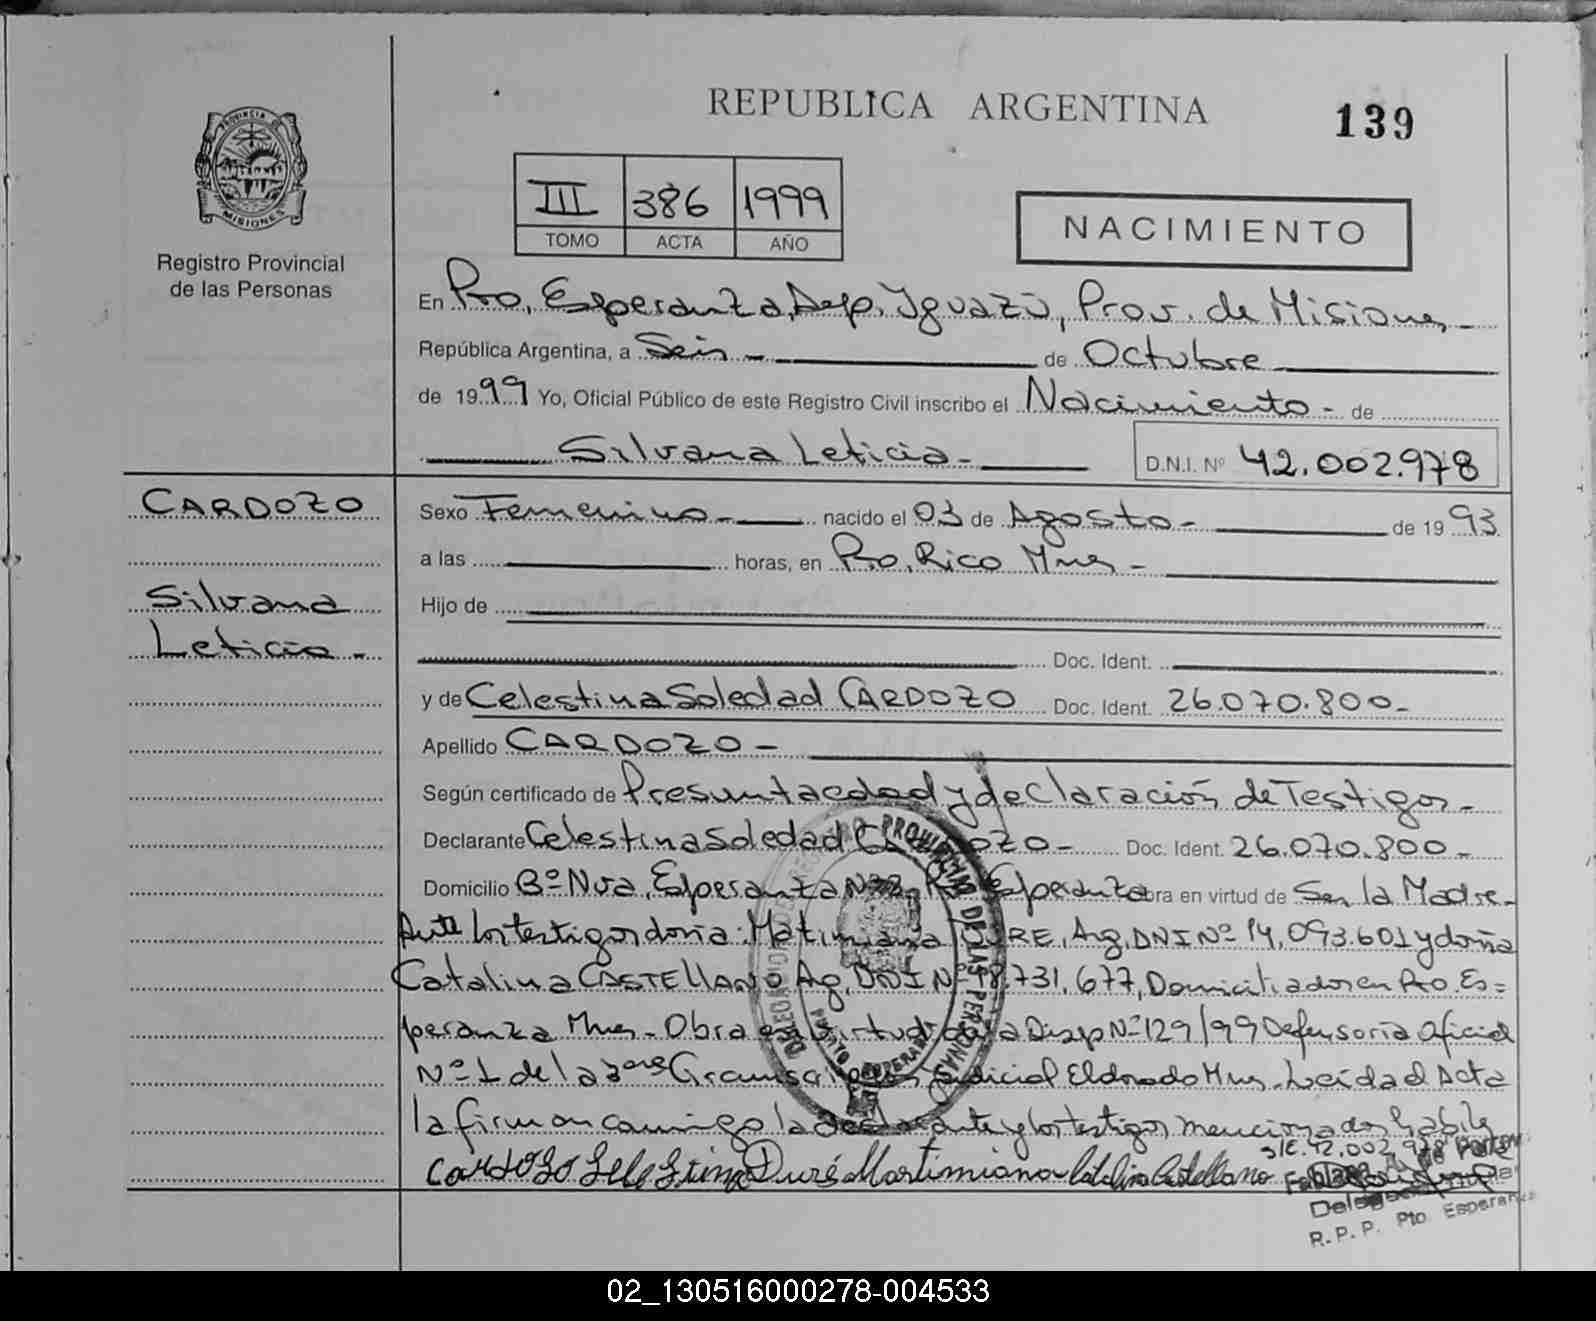 REPUBLICA ARGENTINA
139
PROVINCIA DE
MISIONES
Registro Provincial
de las Personas
III 386 1999
TOMO ACTA AÑO
NACIMIENTO
En Pto. Esperanza, Dep. Iguazú, Prov. de Misiones
República Argentina, a Seis de Octubre
de 1999 Yo, Oficial Público de este Registro Civil inscribo el Nacimiento - de
Silvana Leticia - D.N.I. Nº 42.002.978
CARDOZO
Silvana
Leticia -
Sexo Femenino - nacido el 03 de Agosto - de 19 93
a las horas, en Pto. Rico Mnes -
Hijo de
Doc. Ident.
y de Celestina Soledad CARDOZO Doc. Ident. 26.070.800 -
Apellido CARDOZO -
Según certificado de Presunta edad y declaración de Testigos -
Declarante Celestina Soledad CARDOZO - Doc. Ident. 26.070.800 -
Domicilio Bº Nva. Esperanza Esperanza obra en virtud de Ser la Madre -
Ante los testigos doña: DURE, Arg, DNI Nº 14.093.601 y doña
Catalina CASTELLANO Ag, DNI Nº 18.731.677, Domiciliados en Pto. Es=
peranza Mnes - Obra en virtud a Disp Nº 129/99 Defensoria Oficial
Nº 1 de la 3era Circunscripción Judicial Eldorado Mnes. Leída el Acta
la firman conmigo la declarante y los testigos mencionados
S/E. 42.002.978
Duré Martimiana Catalina Castellano
Delegada
R.P.P. Pto Esperanza
DELEGACION REGISTRO PROVINCIAL DE LAS PERSONAS
PUERTO ESPERANZA
02_130516000278-004533